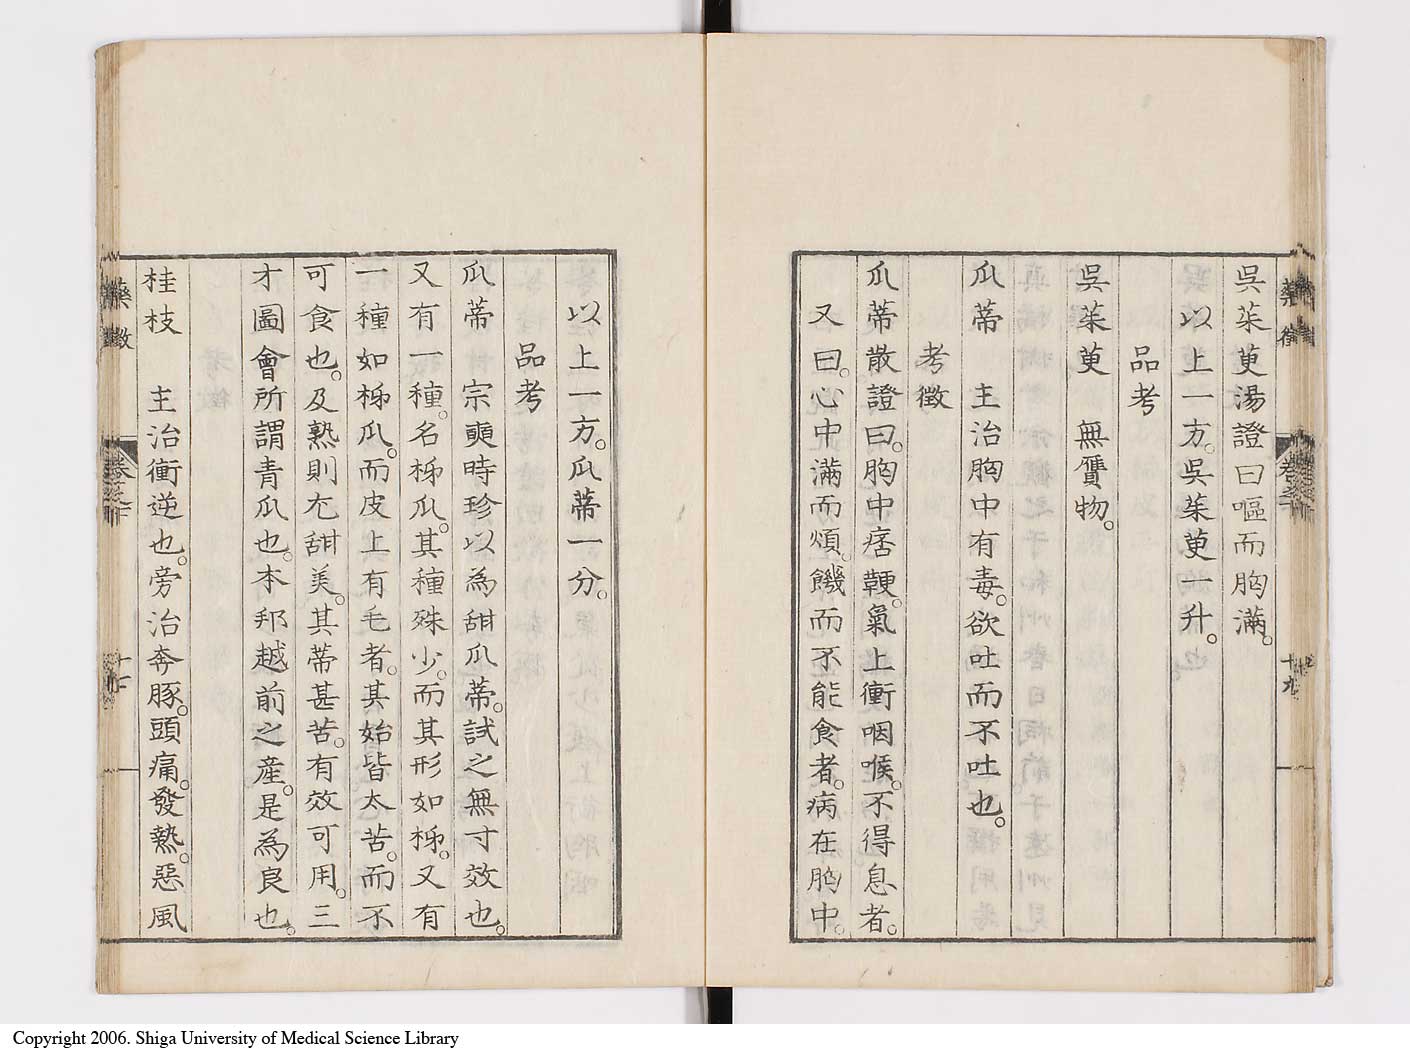 呉茱萸湯證曰嘔而胸滿。
以上一方。呉茱萸一升。
品考
呉茱萸 無贋物。
瓜蒂 主治胸中有毒。欲吐而不吐也。
考徵
瓜蒂散證曰。胸中痞鞕。氣上衝咽喉。不得息者。
又曰。心中滿而煩。饑而不能食者。病在胸中。
以上一方。瓜蒂一分。
品考
瓜蒂 宗奭時珍以為甜瓜蒂。試之無寸效也。
又有一種。名柹瓜。其種殊少。而其形如柹。又有
一種如柹瓜。而皮上有毛者。其始皆太苦。而不
可食也。及熟則尤甜美。其蒂甚苦。有效可用。三
才圖會所謂青瓜也。本邦越前之産。是為良也。
桂枝 主治衝逆也。旁治奔豚。頭痛。發熱。惡風
藥徵
卷之
十九
Copyright 2006. Shiga University of Medical Science Library